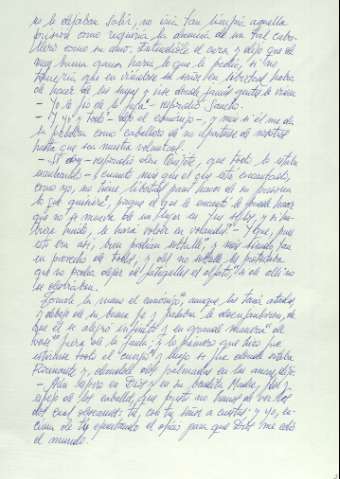 no le dejaban salir, no iría tan limpia aquella
prisión como requería la decencia de un tal caba-
llero como su amo. Entendióle el cura, y dijo que de
muy buena gana haría lo que le pedía, si no
temiera que en viéndose su señor en libertad había
de hacer de las suyas y irse donde jamás gentes le viesen
- Yo le fío de la fuga - respondió Sancho.
- Y yo y todo - dijo el canónigo, y más si él me da
la palabra como caballero de no apartarse de nosotros
hasta que sea nuestra voluntad.
- Sí doy - respondió don Quijote, que todo lo estaba
escuchando - y cuanto más que el que está encantado,
como yo, no tiene libertad para hacer de su persona
lo que quisiere, porque el que le encantó le puede hacer
que no se mueva de un lugar en tres siglos, y si hu-
biere huido, le hará volver en volandas - Y que, pues
esto era así, bien podían soltalle, y más siendo tan
en provecho de todos, y del no soltalle les protestaba
que no podía dejar de fatigalles el olfato, si de allí no
se desviaban.
Tomóle la mano el canónigo, aunque las tenía atadas,
y debajo de su buena fe y palabra le desenjaularon, de
que él se alegró infinito y en grande manera de
verse fuera de la jaula, y lo primero que hizo fue
estirarse todo el cuerpo y luego se fue donde estaba
Rocinante y, dándole dos palmadas en las ancas, dijo:
- Aún espero en Dios y en su bendita Madre, flor y
espejo de los caballos, que presto nos hemos de ver los
dos cual deseamos: tú, con tu señor a cuestas; y yo, en-
cima de ti, ejercitando el oficio para que Dios me echó
al mundo.